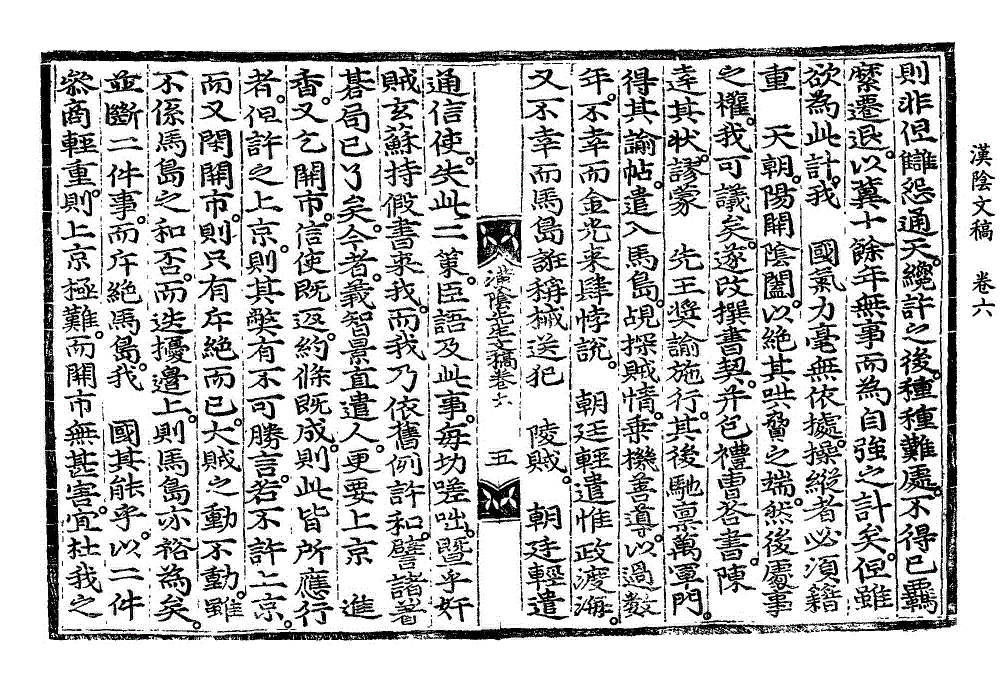 漢陰文稿 卷六
則非但讎怨通天纔許之後種種難處不得已羈
縻遷退以冀十餘年無事而為自強之計矣但雖
欲為此計我 國氣力毫無依據操縱者必須籍
重 天朝陽開陰闔以絕其哄脅之端然後處事
之權我可議矣遂改撰書契幷包禮曹答書陳
達其狀謬蒙 先王獎諭施行其後馳稟萬軍門
得其諭帖遣入馬島覘探賊情乘機善導以過數
年不幸而金光来肆悖說 朝廷輕遣惟政渡海
又不幸而馬島誑稱械送犯 陵賊 朝廷輕遣
漢陰先生文稿卷六 五
通信使失此二策臣語及此事每切嗟咄曁乎奸
賊玄蘇持假書来我而我乃依舊例許和譬諸著
碁局已了矣今者義智景直遣人更要上京 進
香又乞開市信使既返約條既成則此皆所應行
者但許之上京則其弊有不可勝言若不許上京
而又閉關市則只有斥絕而已大賊之動不動雖
不係馬島之和否而迭擾邊上則馬島亦裕為矣
並斷二件事而斥絕馬島我 國其能乎以二件
叅商輕重則上京極難而開市無甚害宜杜我之